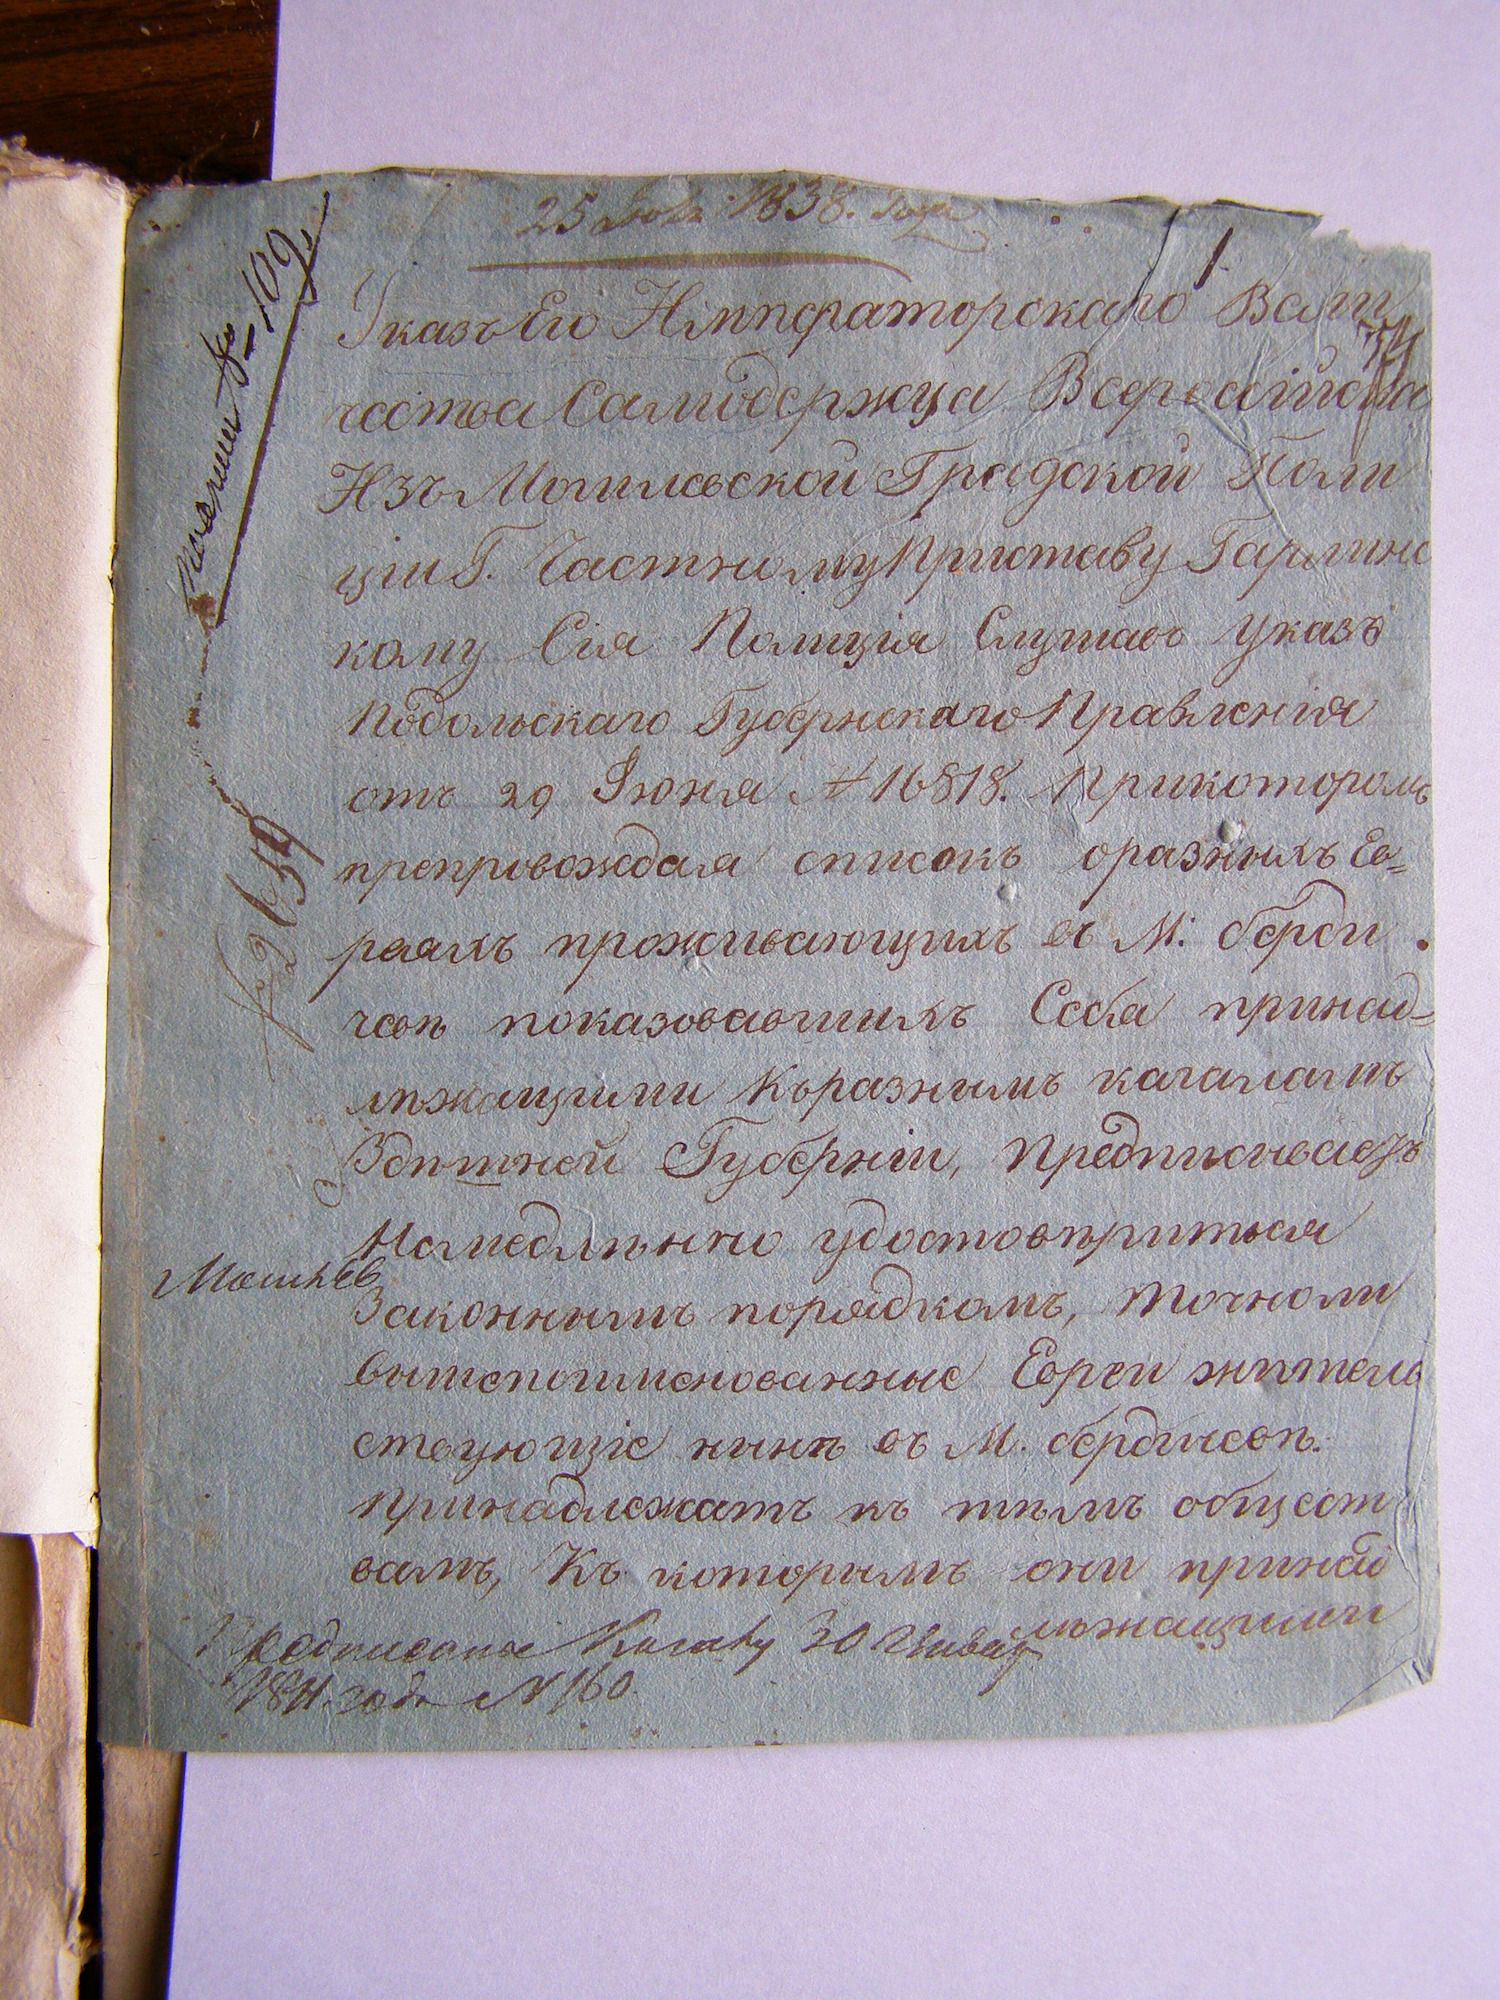 25 Июля 1838. Года
1.
Указъ Его Императорскаго Вели
чества Самодержца Всероссійска
Изъ Могилевской Градской Поли
ціи Г. Частному Приставу Гарлинс
кому Сія Полиція Слушавъ Указъ
Подольскаго Губернскаго Правленія
отъ 29 Іюня № 16818. При которомъ
препровождая списокъ оразныхъ Ев=
реяхъ проживающихъ въ М: берди
чевѣ показовавшихъ Себя принад=
лѣжащими Къразнымъ кагаламъ
Здѣшней Губерніи, Предписываетъ
Немедлѣнно удостовѣриться
Законнымъ порядкомъ, точноли
вышепоименованные Евреи жител
ствующіе нынѣ въ М. бердичевѣ.
Принадлежатъ къ тѣмъ общест
вамъ, Къ которымъ они принад
лѣжащими
№ 109
№ 2159
Предписано Кагалу 30 Январ
1841 года № 160.